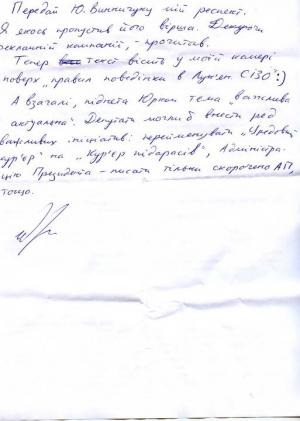 Передай Ю. Винничуку мій респект.
Я якось пропустив його вірша. Дякуючи
рекламній компанії, - прочитав.
Тепер текст висить у моїй камері
поверх „правил поведінки в Лук'ян. СІЗО" :)
А взагалі, піднята Юрком тема „важлива
актуальна". Депутати могли б внести ряд
важливих ініціатив: перейменувать „Урядовий
кур'єр" на „Кур'єр підарасів", Адміністра-
цію Президента - писати тільки скорочено АП,
тощо.